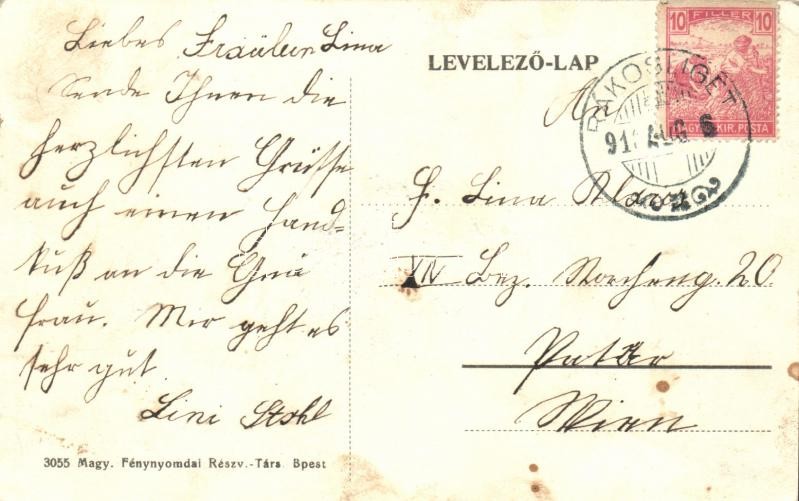 Liebes Fräulein Lina
Sende Ihnen die
herzlichsten Grüsse
auch einen Hand-
kuß an die Gnä
frau. Mir geht es
sehr gut
Lini Stohl
3055 Magy. Fénynyomdai Részv.-Társ. Bpest
LEVELEZŐ-LAP
10 FILLER 10
MAGYAR KIR. POSTA
RÁKOSLIGET
91 AUG 6
An
F. Lina
XIV Bez. Storcheng. 20
Wien